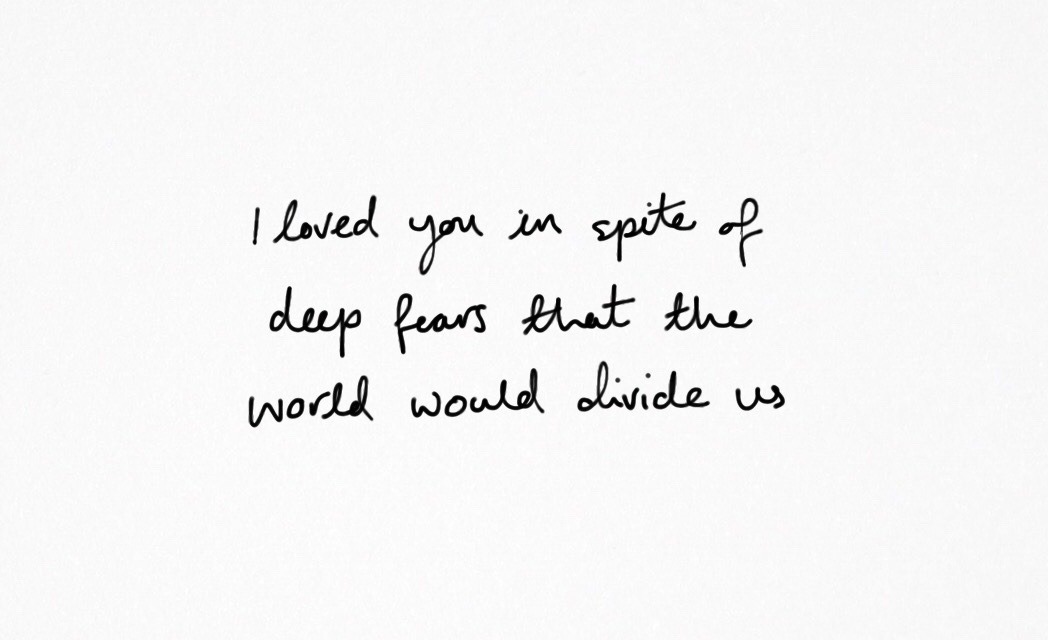 I loved you in spite of
deep fears that the
world would divide us